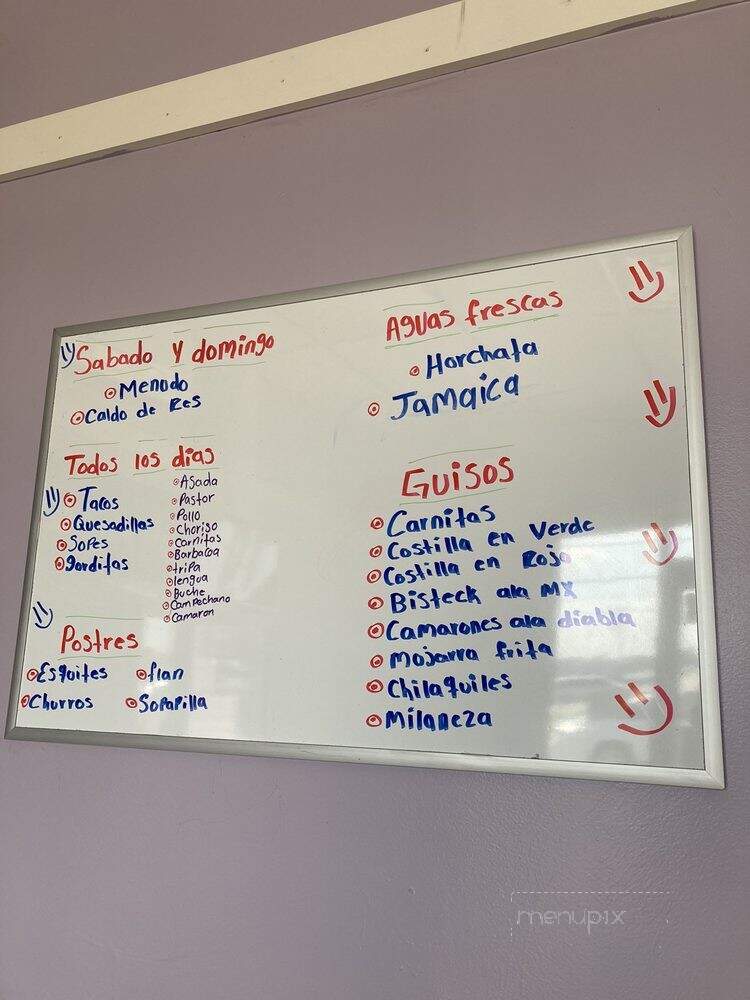 Sabado y domingo
Menudo
Caldo de Res
Todos los dias
Tacos
Quesadillas
Sopes
gorditas
Asada
Pastor
Pollo
Choriso
Carnitas
Barbacoa
tripa
lengua
Buche
Campechano
Camaron
Postres
Esquites
flan
Churros
Sopapilla
Aguas frescas
Horchata
Jamaica
Guisos
Carnitas
Costilla en Verde
Costilla en Rojo
Bisteck ala MX
Camarones ala diabla
Mojarra frita
Chilaquiles
Milaneza
menupix